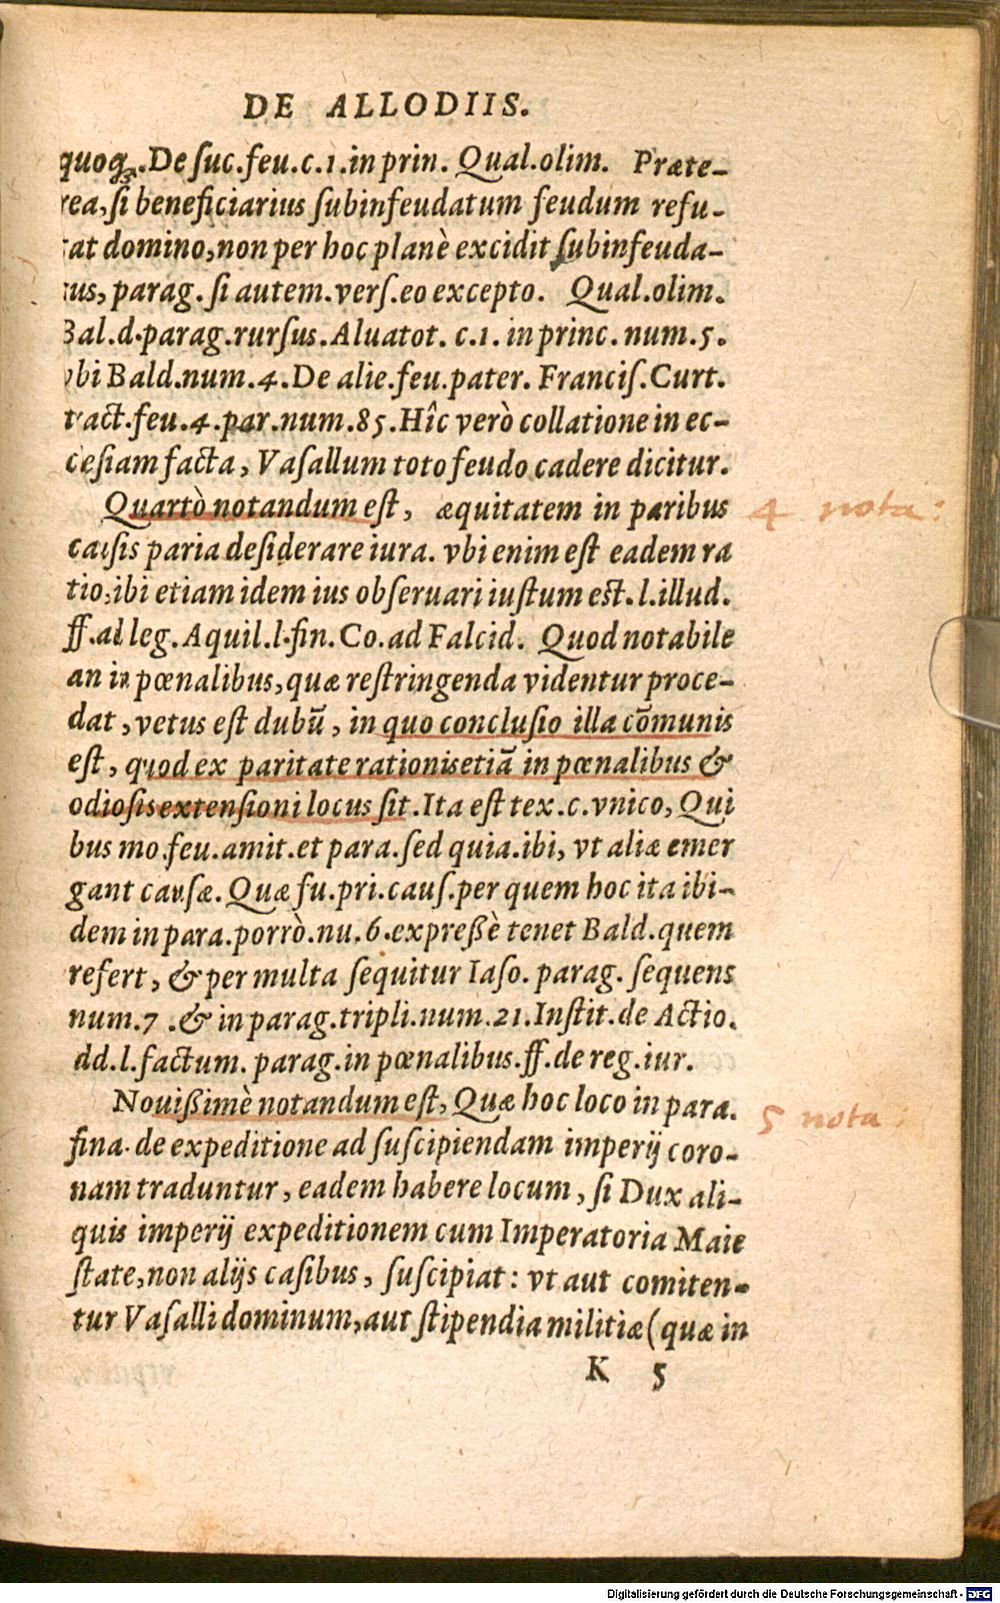 DE ALLODIIS.
quoq;. De ſuc.feu.c.1.in prin. Qual.olim. Præte-
rea, ſi beneficiarius ſubinfeudatum feudum refu-
tat domino, non per hoc planè excidit ſubinfeuda-
tus, parag. ſi autem. verſ. eo excepto. Qual.olim.
Bal.d.parag.rurſus. Aluatot. c.1. in princ. num.5.
vbi Bald.num.4. De alie.feu.pater. Franciſ.Curt.
tract.feu.4.par.num.85. Hîc verò collatione in ec-
cleſiam facta, Vaſallum toto feudo cadere dicitur.
Quartò notandum eſt, æquitatem in paribus
cauſis paria deſiderare iura. vbi enim eſt eadem ra
tio, ibi etiam idem ius obſeruari iuſtum eſt. l.illud.
ff.ad leg. Aquil.l.fin. Co. ad Falcid. Quod notabile
an in pœnalibus, quæ reſtringenda videntur proce-
dat, vetus eſt dubiũ, in quo concluſio illa cõmunis
eſt, quod ex paritate rationis etiã in pœnalibus &
odioſis extenſioni locus ſit. Ita eſt tex. c. vnico, Qui
bus mo.feu.amit. et para.ſed quia. ibi, vt aliæ emer
gant cauſæ. Quæ fu.pri.cauſ. per quem hoc ita ibi-
dem in para.porrò.nu.6.expreßè tenet Bald. quem
refert, & per multa ſequitur Iaſo. parag. ſequens
num.7. & in parag.tripli.num.21. Inſtit.de Actio.
dd.l.factum. parag. in pœnalibus.ff.de reg.iur.
Nouißimè notandum eſt, Quæ hoc loco in para.
fina. de expeditione ad ſuſcipiendam imperij coro-
nam traduntur, eadem habere locum, ſi Dux ali-
quis imperij expeditionem cum Imperatoria Maie
ſtate, non alijs caſibus, ſuſcipiat: vt aut comiten-
tur Vaſalli dominum, aut ſtipendia militiæ (quæ in
K 5
4 nota:
5 nota:
Digitalisierung gefördert durch die Deutsche Forschungsgemeinschaft - DFG